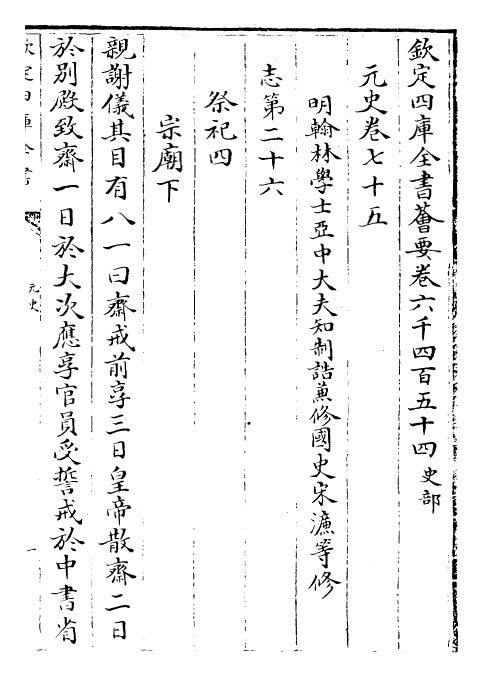 欽定四庫全書薈要卷六千四百五十四史部
元史卷七十五
明翰林學士亞中大夫知制誥兼修國史宋濂等修
志第二十六
祭祀四
宗廟下
親謝儀其目有八一曰齋戒前享三日皇帝散齋二日
於別殿致齋一日於大次應享官員受誓戒於中書省
欽定四庫全書
元史
一